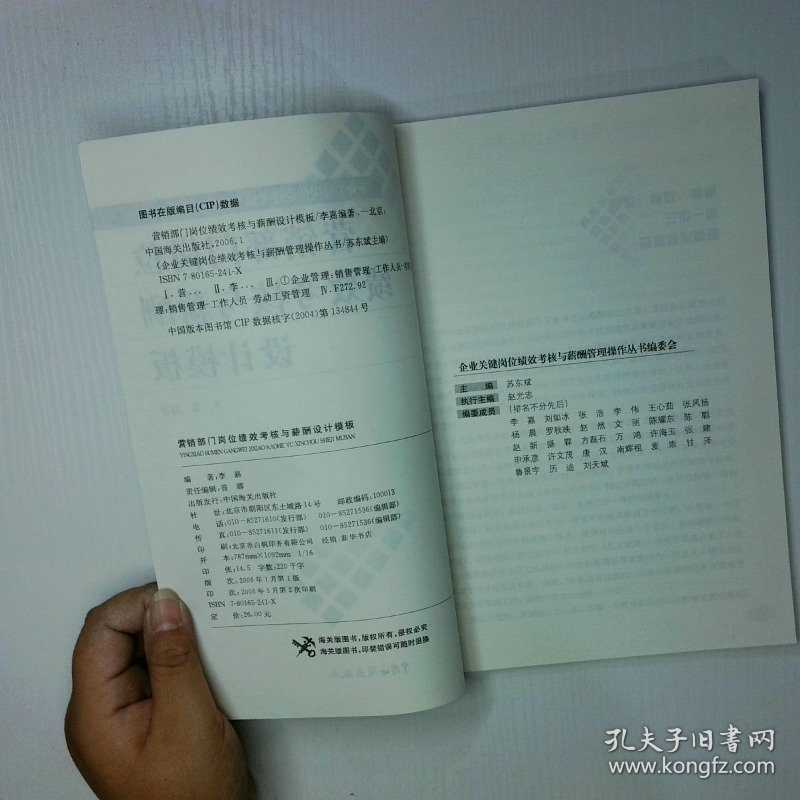 图书在版编目(CIP)数据
营销部门岗位绩效考核与薪酬设计模板/李嘉编著.—北京:
中国海关出版社,2006.1
(企业关键岗位绩效考核与薪酬管理操作丛书/苏东斌主编)
ISBN 7-80165-241-X
Ⅰ.营... Ⅱ.李... Ⅲ.①企业管理:销售管理-工作人员-
理:销售管理-工作人员-劳动工资管理 Ⅳ.F272.92
中国版本图书馆CIP数据核字(2004)第134844号
设计模板
营销部门岗位绩效考核与薪酬设计模板
YINGXIAO BUMEN GANGWEI JIXIAO KAOHE YU XINCHOU SHEJI MUBAN
编 著:李 嘉
责任编辑:普 娜
出版发行:中国海关出版社
社 址:北京市朝阳区东土城路14号 邮政编码:100013
电 话:010-85271610(发行部) 010-85271536(编辑部)
传 真:010-85271611(发行部) 010-85271536(编辑部)
印 刷:北京市白帆印务有限公司 经销:新华书店
开 本:787mm×1092mm 1/16
印 张:14.5 字数:220千字
版 次:2006年1月第1版
印 次:2006年5月第2次印刷
ISBN 7-80165-241-X
定 价:26.00元
海关版图书,版权所有,侵权必究
海关版图书,印装错误可随时退换
企业关键岗位绩效考核与薪酬管理操作丛书编委会
主 编 苏东斌
执行主编 赵光忠
编委成员 (排名不分先后)
李 嘉 刘如冰 张 浩 李 伟 王心茹 张凤扬
杨 晨 罗秋映 赵 然 文 丽 陈耀东 陈 聪
赵 新 盛 霖 方磊石 万 鸿 许海玉 张 建
申承彦 许文茂 唐 汉 南辉祖 麦 崇 甘 泽
鲁景宇 历 途 刘天斌
孔夫子旧书网
www.kongfz.com